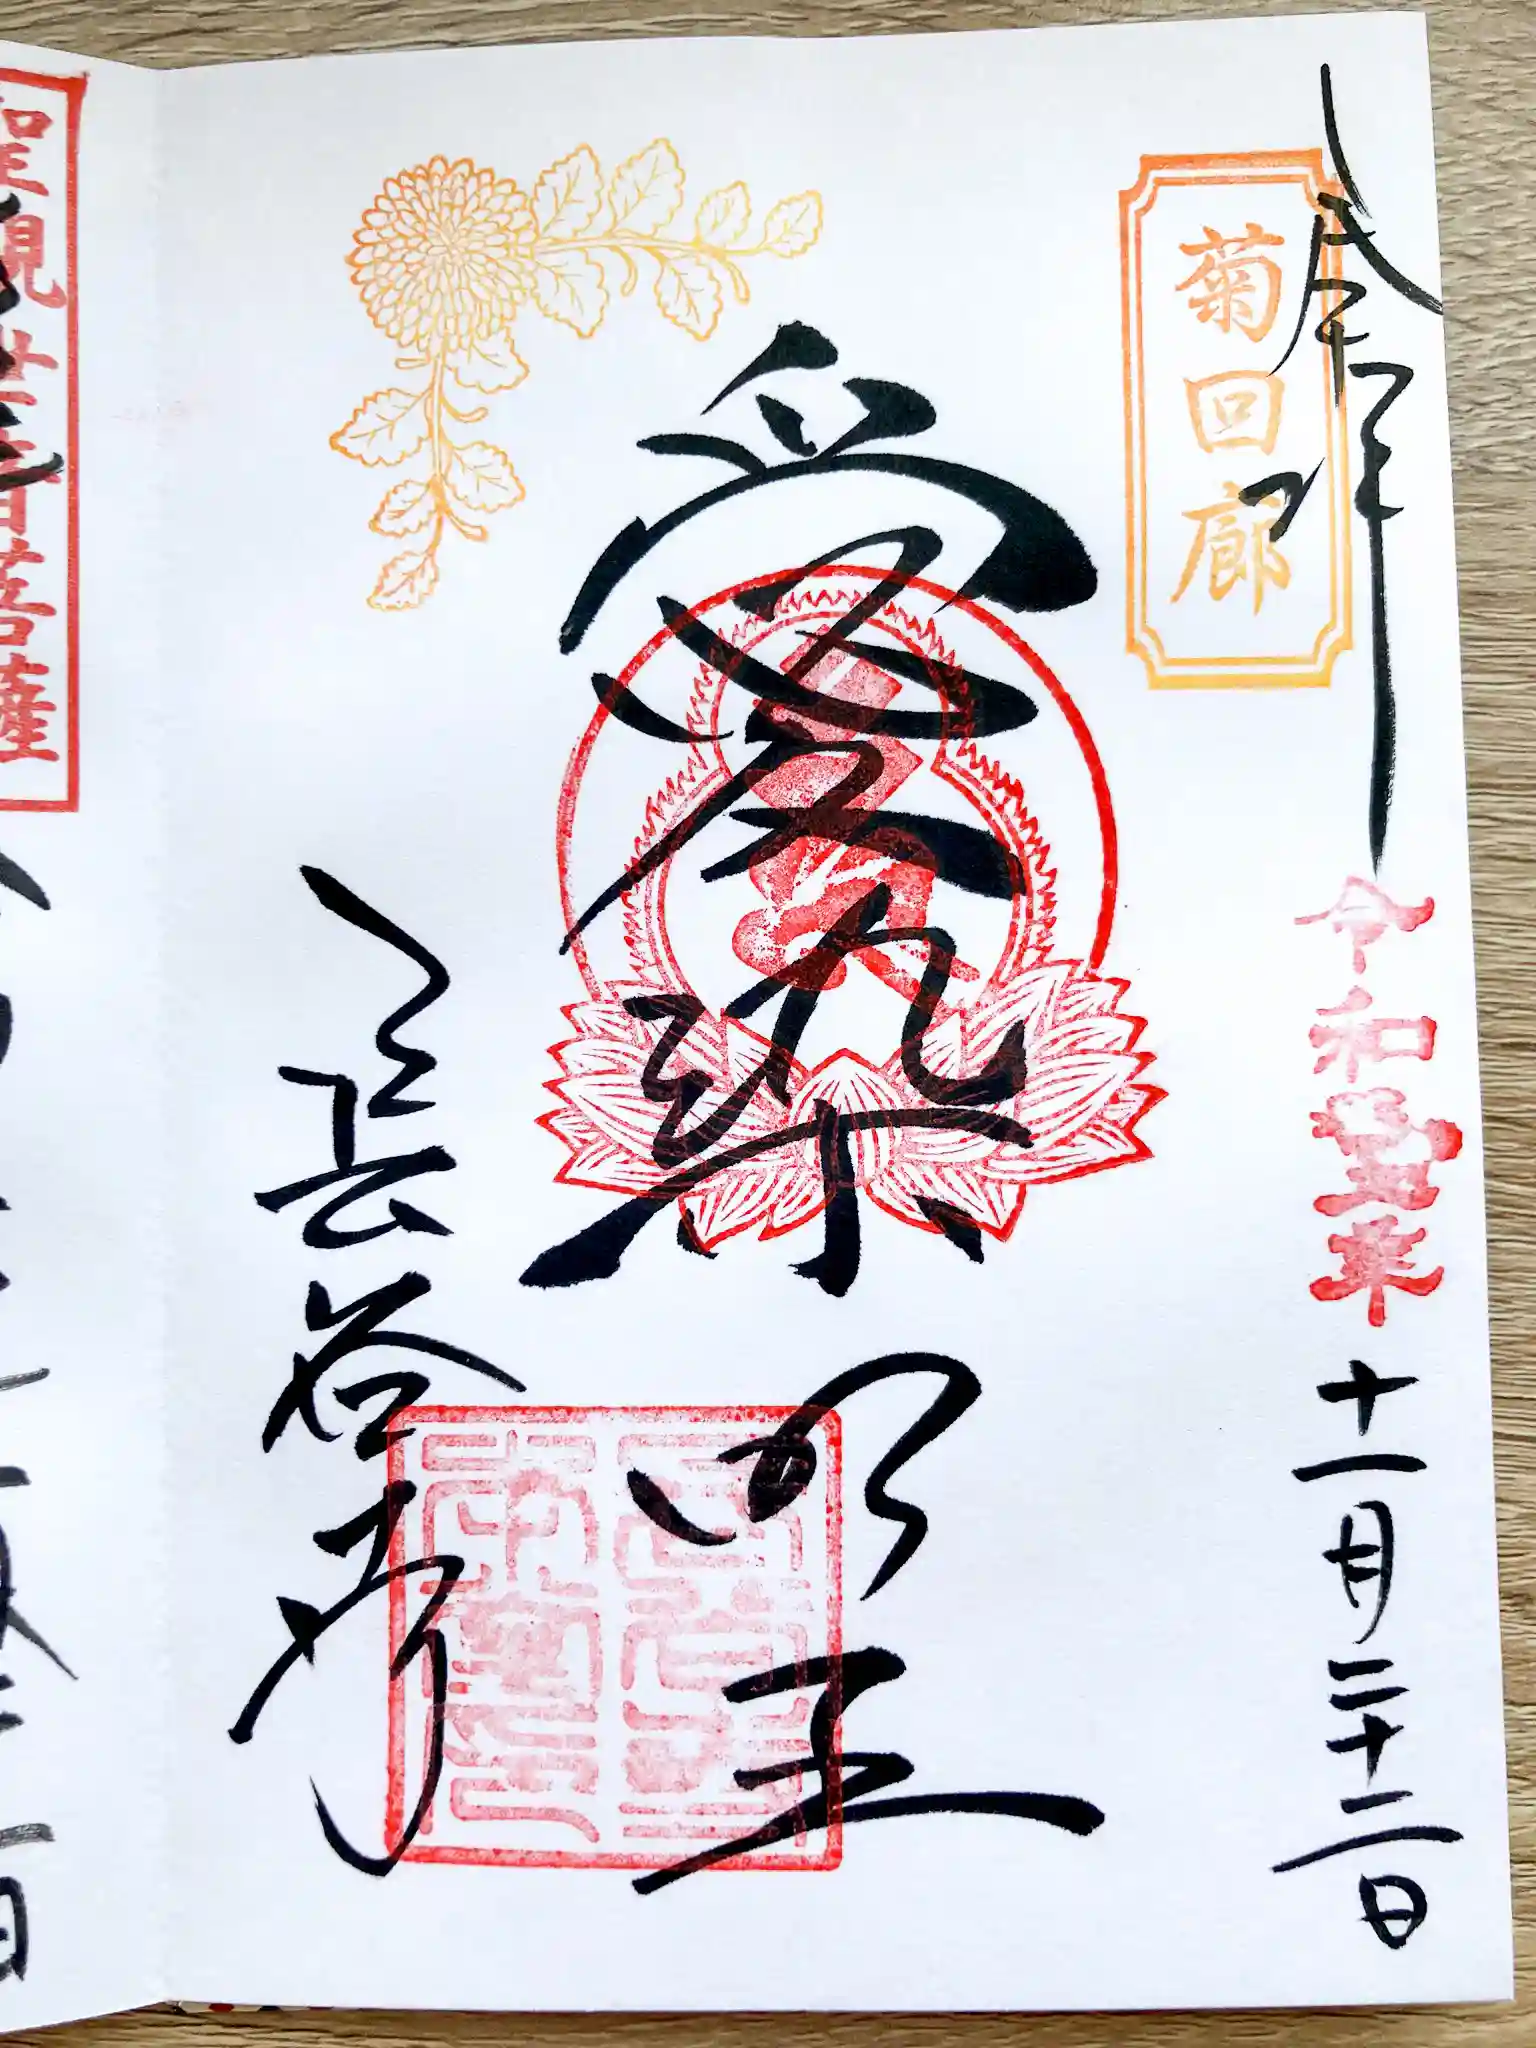 奉拝
菊回廊
令和 年 十一月二十二日
愛染明王
長谷寺
聖観世音菩薩